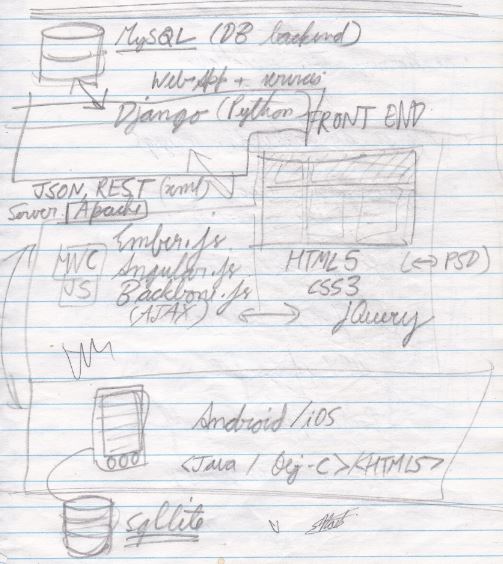 MySQL (DB backend)
Web App + services
Django (Python
FRONT END
JSON, REST (xml)
Server Apache
MVC
JS
Ember.js
Angular.js
Backbone.js
(AJAX)
HTML5 (↔ PSD)
CSS3
jQuery
Android/iOS
<Java / Obj-C> <HTML5>
sqllite